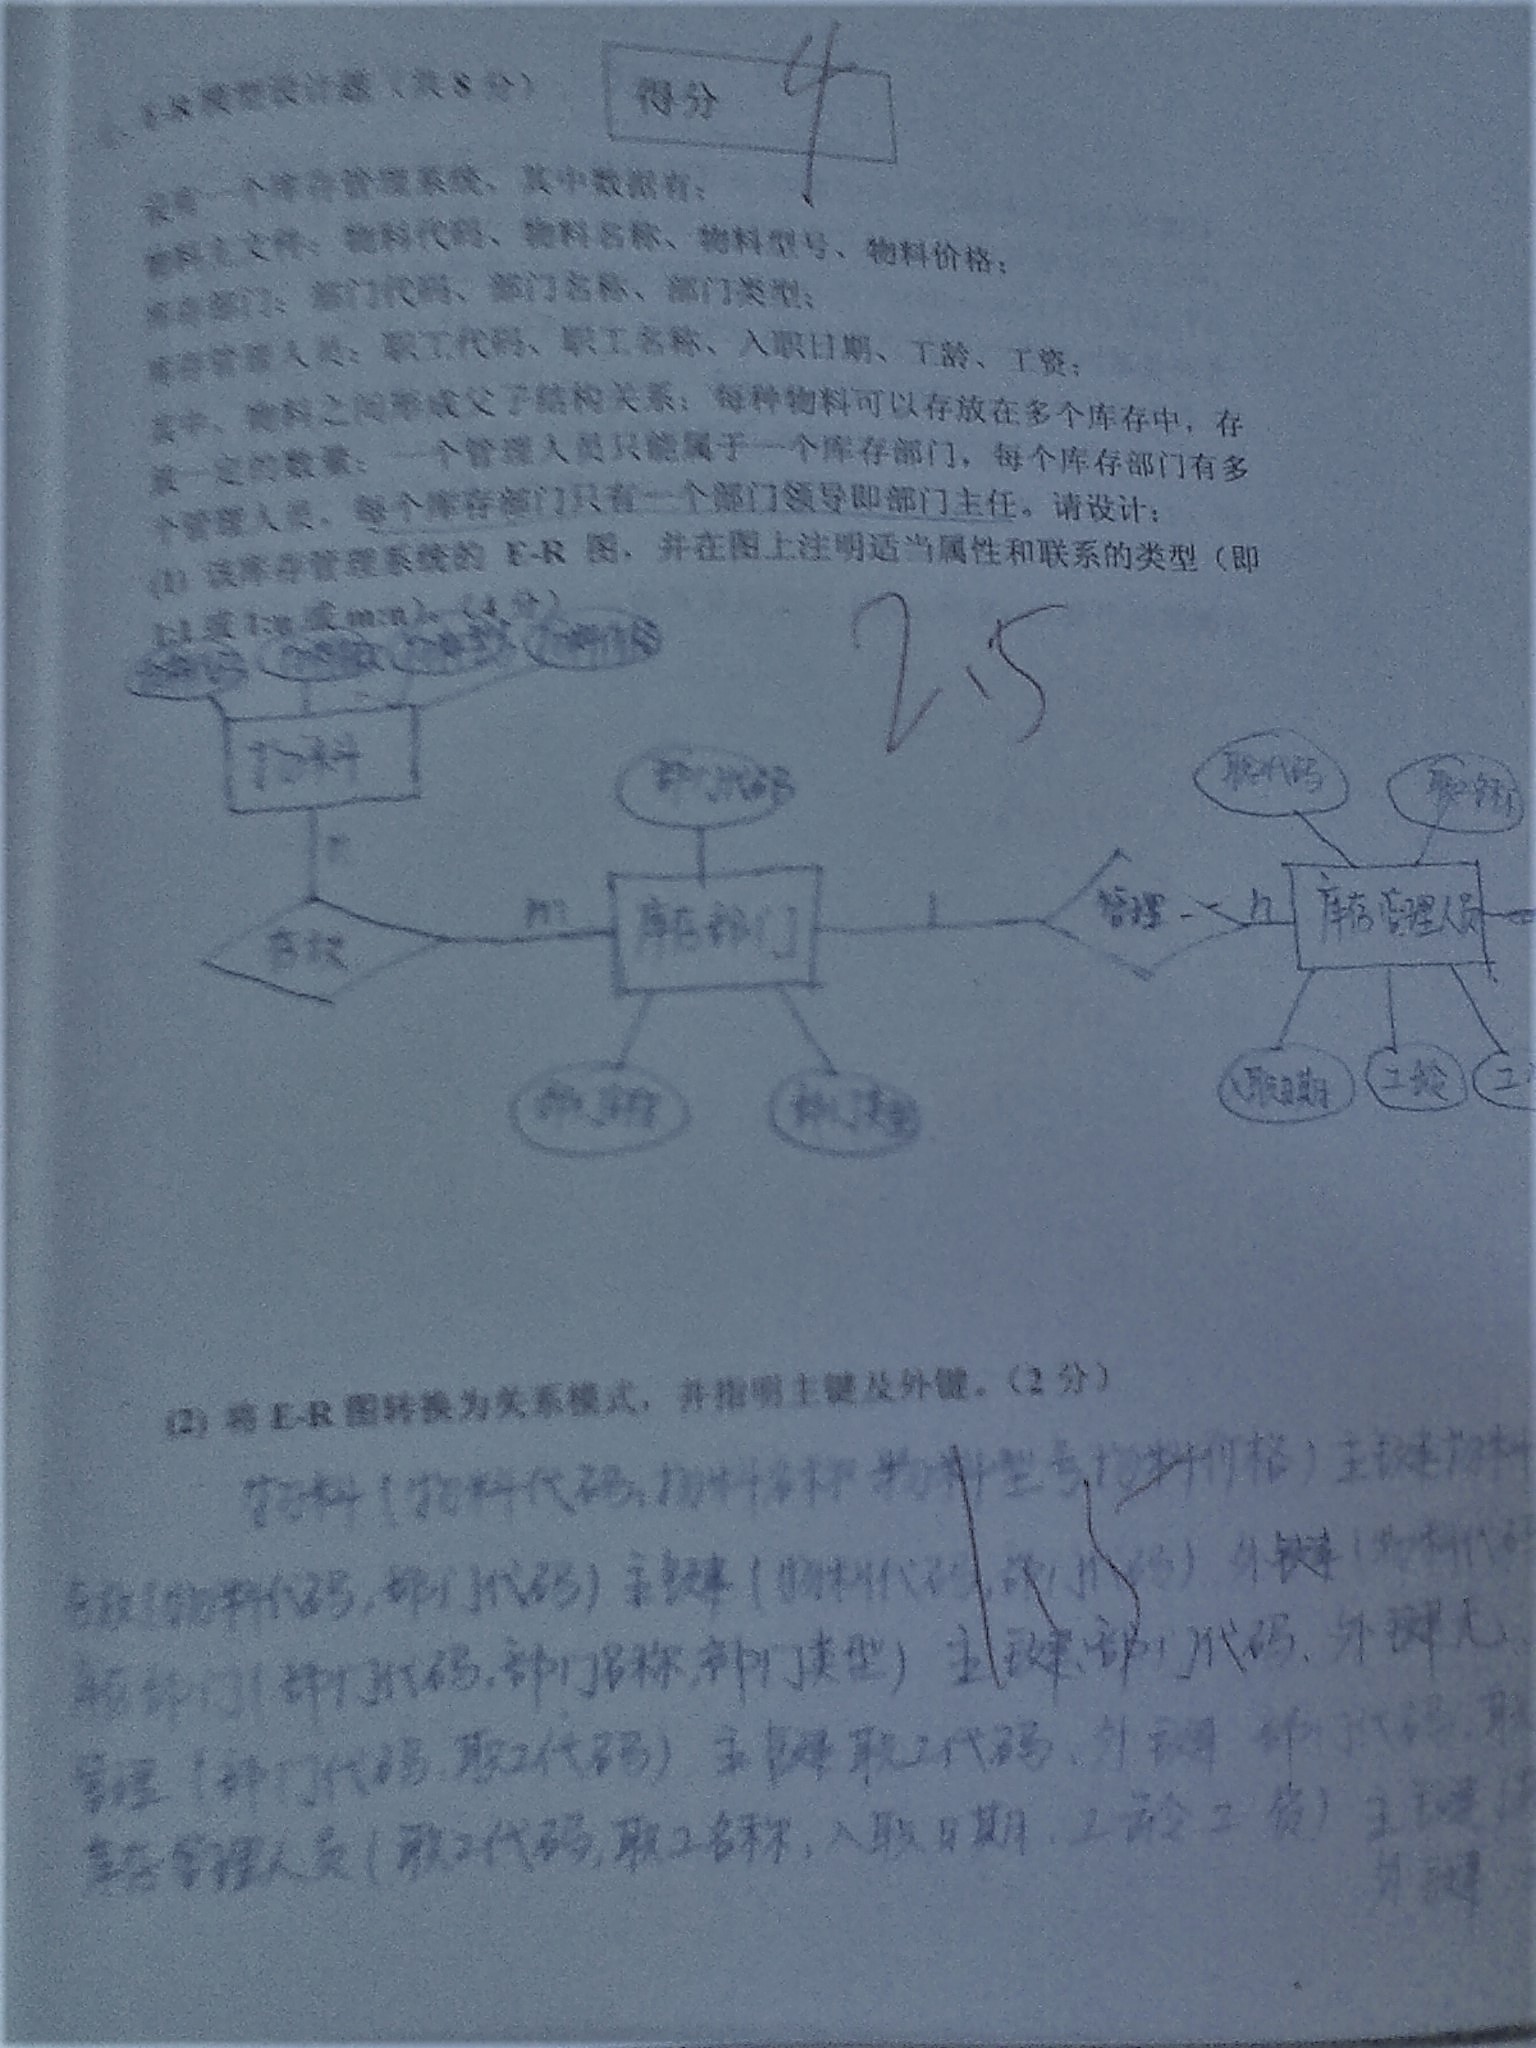 E-R 模型设计题（共 8 分）
得分 4
设有一个库存管理系统，其中数据有：
物料主文件：物料代码、物料名称、物料型号、物料价格；
库存部门：部门代码、部门名称、部门类型；
库存管理人员：职工代码、职工名称、入职日期、工龄、工资；
其中，物料之间形成父子结构关系；每种物料可以存放在多个库存中，存
放一定的数量；一个管理人员只能属于一个库存部门，每个库存部门有多
个管理人员，每个库存部门只有一个部门领导即部门主任。请设计：
(1) 该库存管理系统的 E-R 图，并在图上注明适当属性和联系的类型（即
1:1 或 1:n 或 m:n）。（4 分）
2.5
物料
部门代码
职工代码
n
存放
m
库存部门
1
管理
n
库存管理人员
部门名称
部门类型
入职日期
工龄
(2) 将 E-R 图转换为关系模式，并指明主键及外键。（2 分）
物料（物料代码，物料名称 物料型号，物料价格）主键 物料
1.5
存放（物料代码，部门代码）主键（物料代码，部门代码）外键（物料代码
库存部门（部门代码，部门名称，部门类型）主键：部门代码、外键无
管理（部门代码，职工代码）主键 职工代码、外键 部门代码、职
库存管理人员（职工代码，职工名称，入职日期，工龄 工资）主键
外键